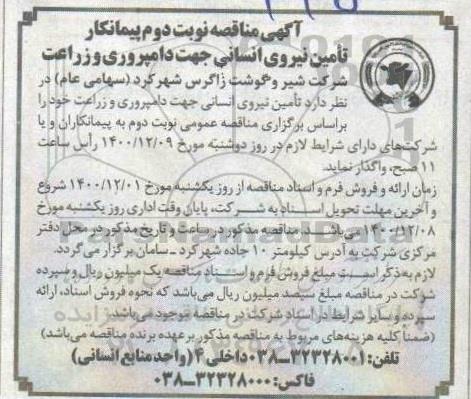 آگهی مناقصه نوبت دوم پیمانکار
تأمین نیروی انسانی جهت دامپروری و زراعت
شرکت شیر و گوشت زاگرس شهرکرد (سهامی عام) در
نظر دارد تأمین نیروی انسانی جهت دامپروری و زراعت خود را
براساس برگزاری مناقصه عمومی نوبت دوم به پیمانکاران و یا
شرکت‌های دارای شرایط لازم در روز دوشنبه مورخ ۱۴۰۰/۱۲/۰۹ رأس ساعت
۱۱ صبح، واگذار نماید.
زمان ارائه و فروش فرم و اسناد مناقصه از روز یکشنبه مورخ ۱۴۰۰/۱۲/۰۱ شروع
و آخرین مهلت تحویل اسناد به شرکت، پایان وقت اداری روز یکشنبه مورخ
۱۴۰۰/۱۲/۰۸ می‌باشد. مناقصه مذکور در ساعت و تاریخ مذکور در محل دفتر
مرکزی شرکت به آدرس کیلومتر ۱۰ جاده شهرکرد ـ سامان برگزار می‌گردد.
لازم به ذکر است مبلغ فروش فرم و اسناد مناقصه یک میلیون ریال و سپرده
شرکت در مناقصه مبلغ سیصد میلیون ریال می‌باشد که نحوه فروش اسناد، ارائه
سپرده و سایر شرایط در اسناد شرکت در مناقصه موجود می‌باشد.
(ضمنا کلیه هزینه‌های مربوط به مناقصه مذکور برعهده برنده مناقصه می‌باشد)
تلفن: ۳۲۳۲۸۰۰۱ـ۰۳۸ داخلی ۴ (واحد منابع انسانی)
فاکس: ۳۲۳۲۸۰۰۰ـ۰۳۸